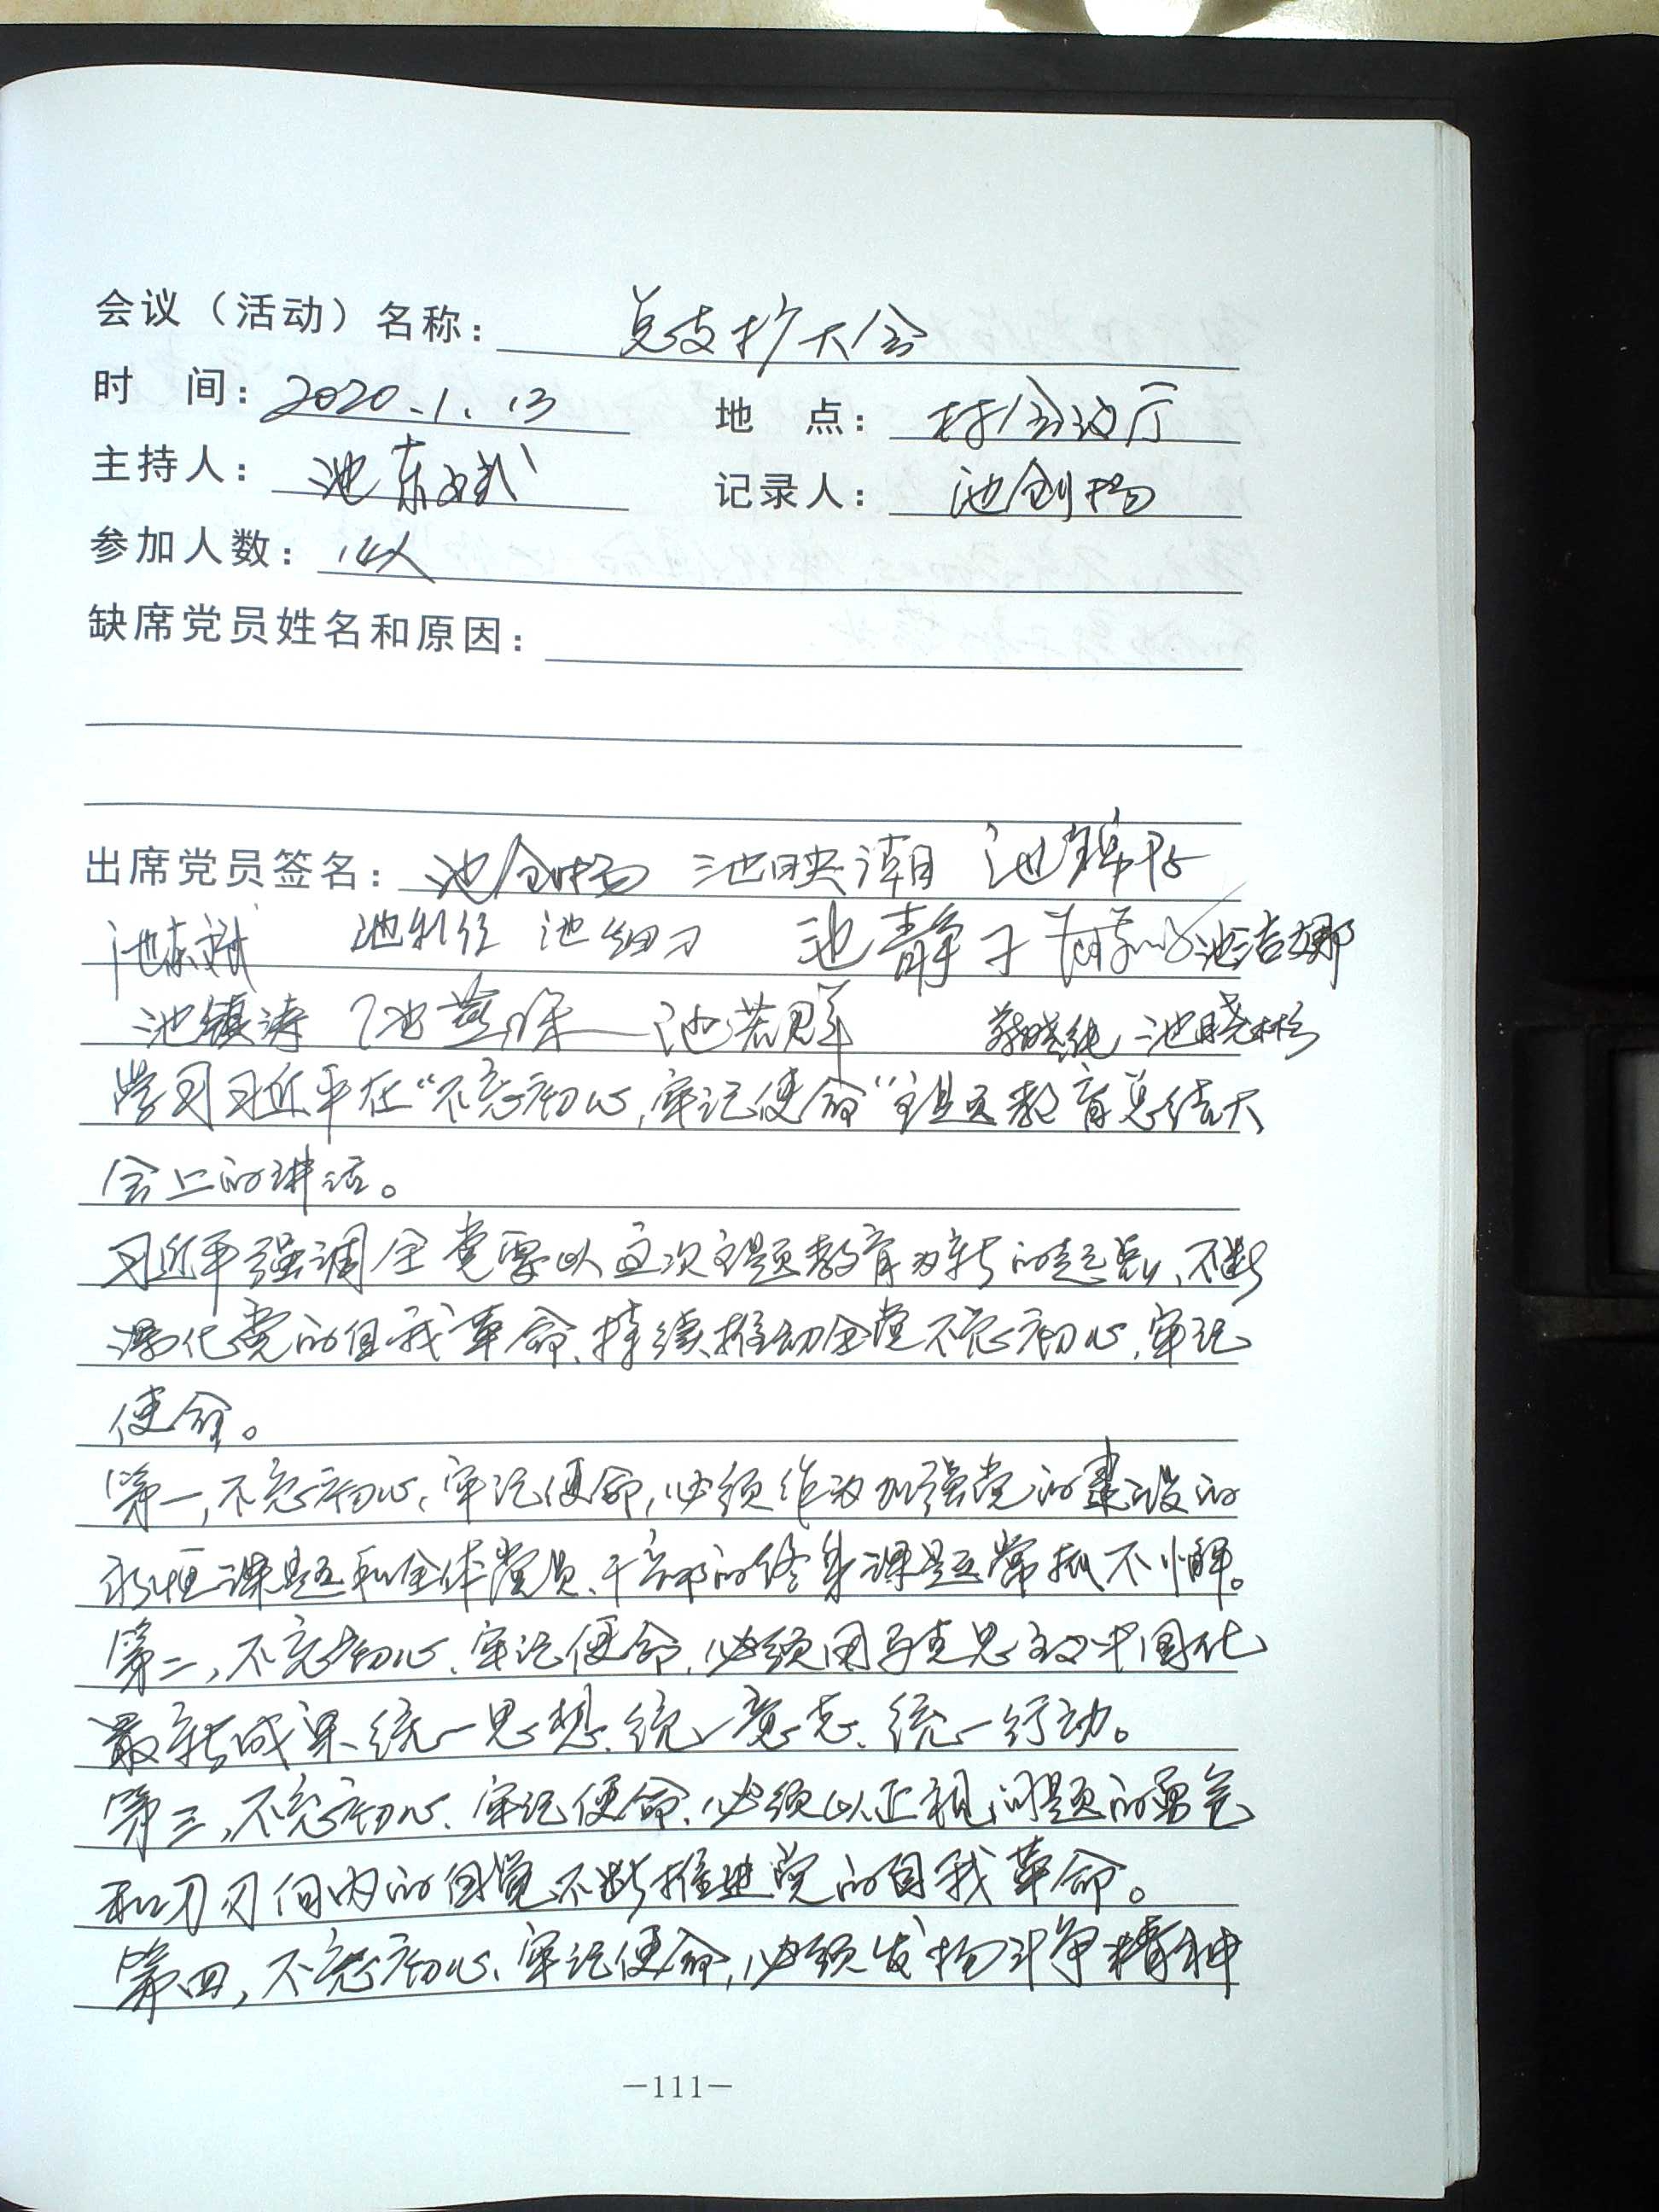 会议（活动）名称：总支扩大会
时　间：2020.1.13　地　点：村会议厅
主持人：池东斌　记录人：池创杨
参加人数：14人
缺席党员姓名和原因：
出席党员签名：池创杨 池映潮 池锦
池东斌 池细刀 池静子 池洁娜
池镇涛 池燕 池若群 蔡晓纯 池晓彬
学习习近平在“不忘初心,牢记使命”主题教育总结大
会上的讲话。
习近平强调全党要以这次主题教育为新的起点、不断
深化党的自我革命、持续推动全党不忘初心,牢记
使命。
第一,不忘初心、牢记使命,必须作为加强党的建设的
永恒课题和全体党员、干部的终身课题常抓不懈。
第二,不忘初心、牢记使命,必须用马克思主义中国化
最新成果统一思想、统一意志、统一行动。
第三,不忘初心、牢记使命、必须以正视问题的勇气
和刀刃向内的自觉不断推进党的自我革命。
第四,不忘初心、牢记使命,必须发扬斗争精神
—111—